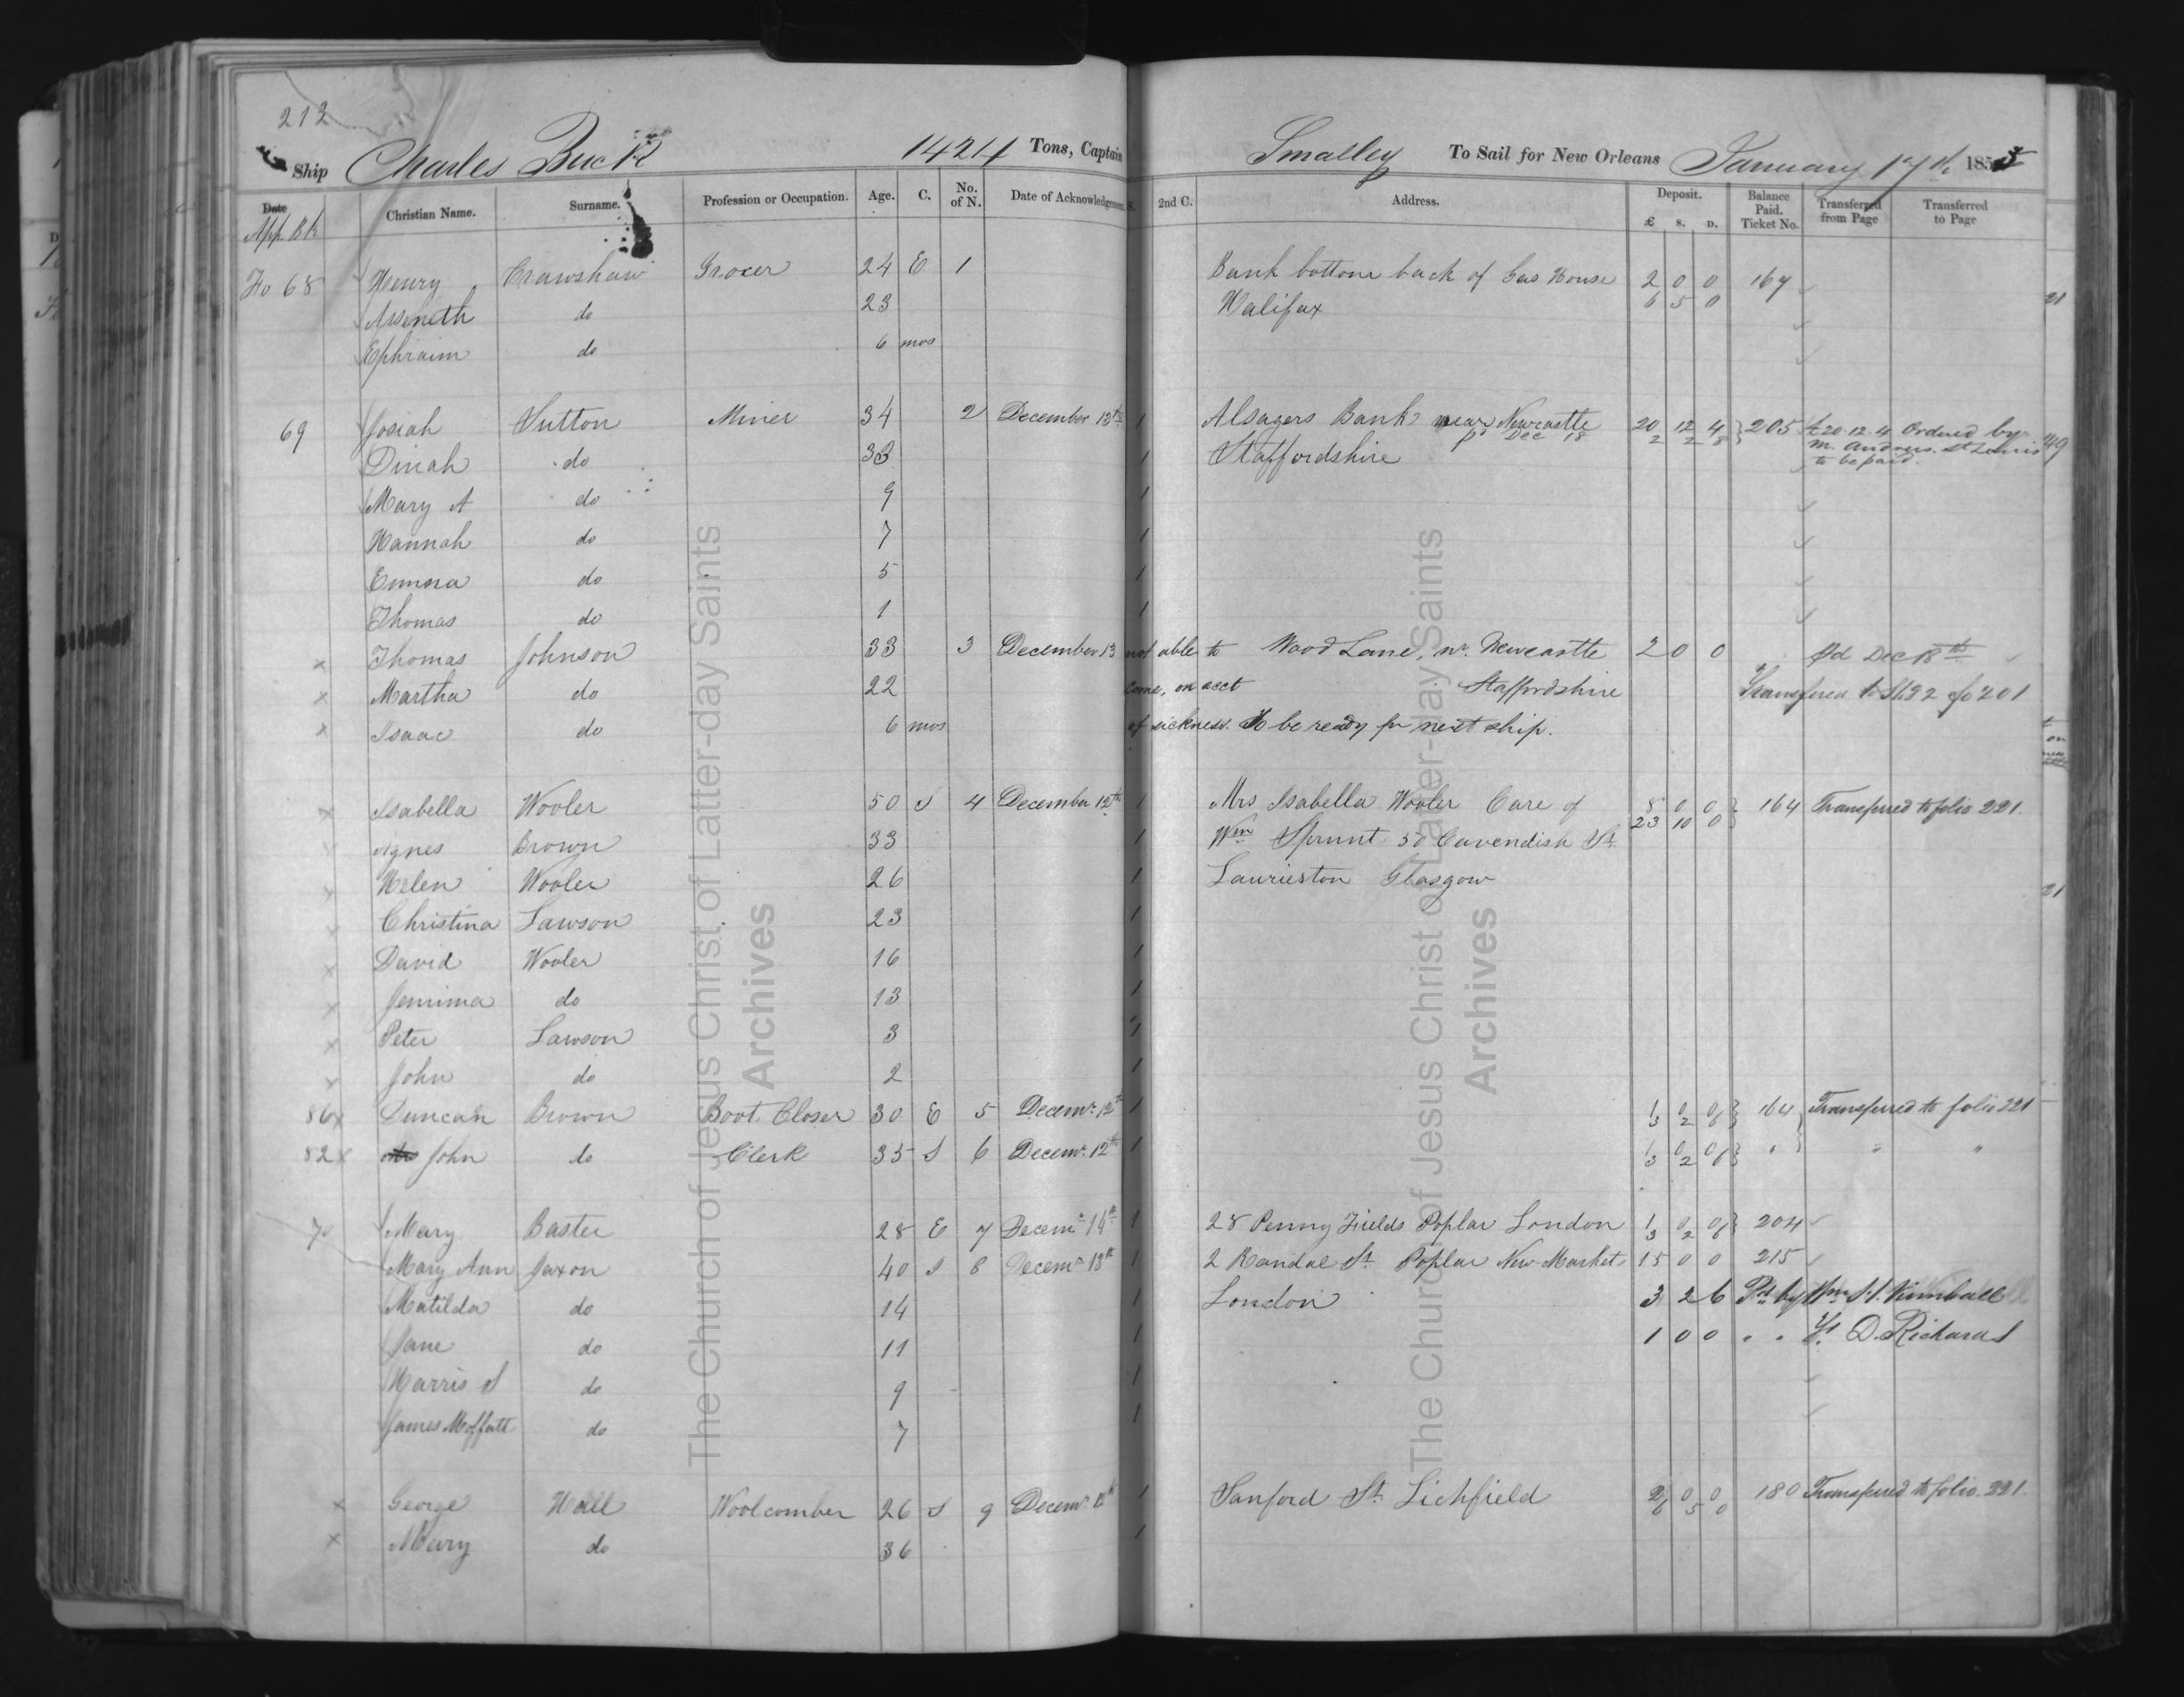 212
Ship Charles Buck 1424 Tons, Captain Smalley To Sail for New Orleans January 17th 1855
Date Christian Name. Surname. Profession or Occupation. Age. C. No. of N. Date of Acknowledgement. 2nd C. Address. Deposit. £ S. D. Balance Paid. Ticket No. Transferred from Page Transferred to Page
App Bk
Fo 68 Henry Crawshaw Grocer 24 E 1 Bank bottom back of Gas House 2 0 0 167
Asseneth do 23 Halifax 6 5 0
Ephraim do 6 mos
69 Josiah Sutton Miner 34 2 December 13th 1 Alsagers Bank near Newcastle 20 12 4 205 £20.12.4 Ordered by
pd Dec 18 2 2 8 M. Andrus. St Louis
Dinah do 33 1 Staffordshire to be paid.
Mary A do 9 1
Hannah do 7 1
Emma do 5 1
Thomas do 1 1
x Thomas Johnson 33 3 December 13 not able to Wood Lane, nr. Newcastle 2 0 0 pd Dec 18th
x Martha do 22 come, on acct Staffordshire Transfered to Sh92 fo 201
x Isaac do 6 mos of sickness. To be ready for next ship.
x Isabella Wooler 50 S 4 December 12th 1 Mrs Isabella Wooler Care of 8 0 0 164 Transferred to folio 221.
23 10 0
Agnes Brown 33 1 Wm Sprunt 50 Cavendish St.
x Helen Wooler 26 1 Laurieston Glasgow
x Christina Lawson 23 1
x David Wooler 16 1
x Jemima do 13 1
x Peter Lawson 3 1
x John do 2 1
86 x Duncan Brown Boot Closer 30 E 5 Decemr. 12th 1 1 0 0 164 Transferred to folio 221
3 2 6
82 x John do Clerk 35 S 6 Decemr. 12th 1 1 0 0 " " "
3 2 6
70 Mary Baster 28 E 7 Decemr 14th 1 28 Penny Fields Poplar London 1 0 0 204
3 2 6
Mary Ann Jaxon 40 S 8 Decemr 13th 1 2 Randal St. Poplar New Market 15 0 0 215
Matilda do 14 1 London 3 2 6 Pd by Wm H. Kimball
Jane do 11 1 1 0 0 " " D. Richards
Harris S do 9 1
James Moffatt do 7 1
x George Hall Woolcomber 26 S 9 Decemr. 12th 1 Sanford St. Lichfield 2 0 0 180 Transferred to folio. 221.
6 5 0
x Mary do 36 1
The Church of Jesus Christ of Latter-day Saints
Archives
The Church of Jesus Christ of Latter-day Saints
Archives